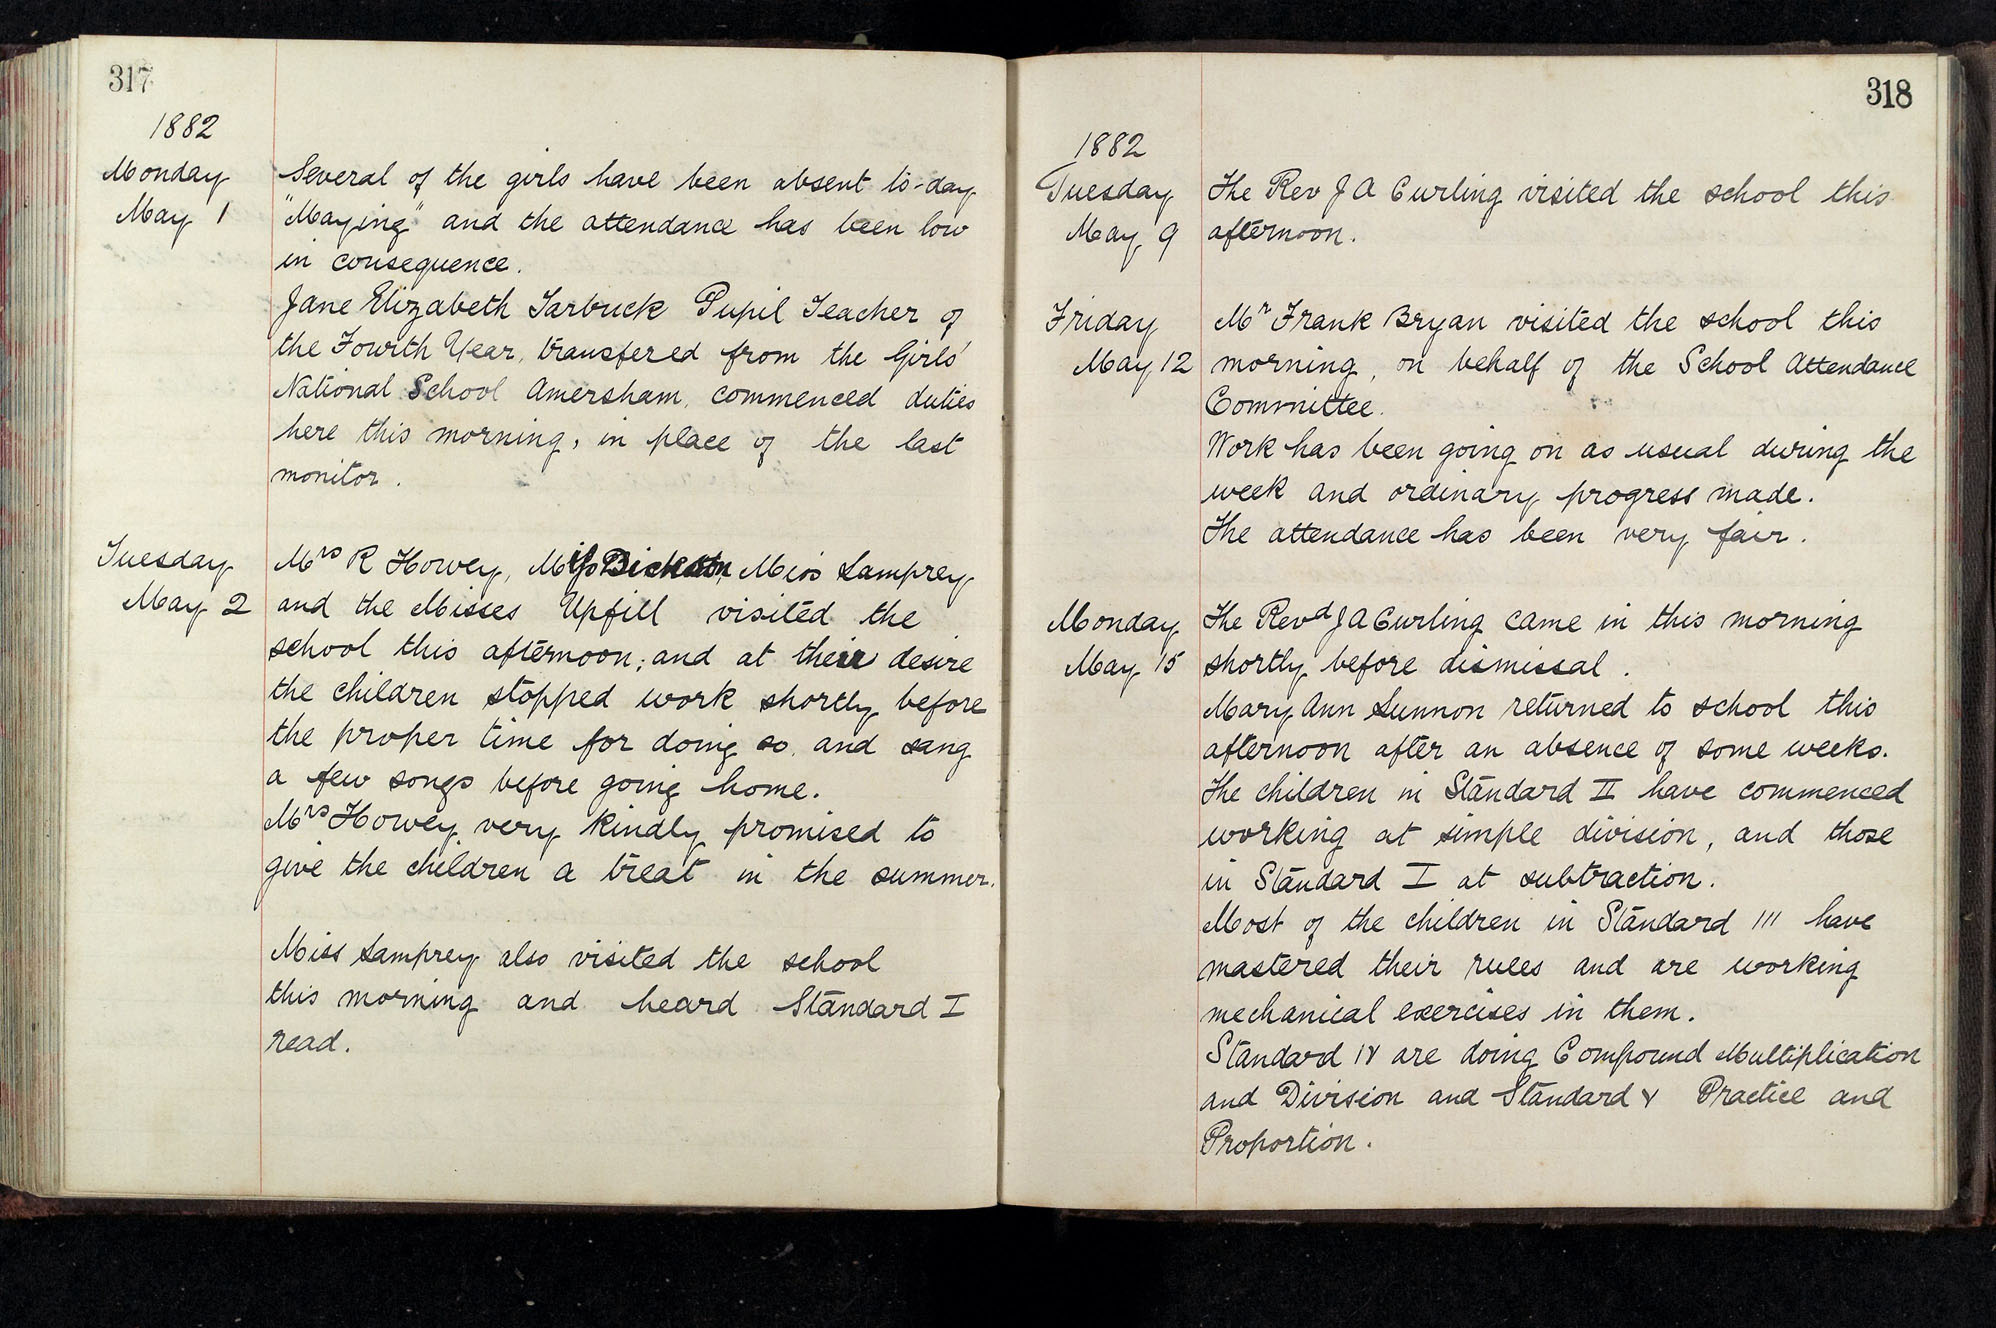 317
1882
Monday
May 1
Several of the girls have been absent to-day
"Maying" and the attendance has been low
in consequence.
Jane Elizabeth Tarbuck Pupil Teacher of
the Fourth Year, transfered from the Girls'
National School Amersham, commenced duties
here this morning, in place of the last
monitor.
Tuesday
May 2
Mrs R Howey, Miss Miss Lamprey
and the Misses Upfill visited the
school this afternoon; and at their desire
the children stopped work shortly before
the proper time for doing so, and sang
a few songs before going home.
Mrs Howey very kindly promised to
give the children a treat in the summer.
Miss Lamprey also visited the school
this morning and heard Standard I
read.
318
1882
Tuesday
May 9
The Rev J A Curling visited the school this
afternoon.
Friday
May 12
Mr Frank Bryan visited the school this
morning, on behalf of the School Attendance
Committee.
Work has been going on as usual during the
week and ordinary progress made.
The attendance has been very fair.
Monday
May 15
The Revd J A Curling came in this morning
shortly before dismissal.
Mary Ann Sunnon returned to school this
afternoon after an absence of some weeks.
The children in Standard II have commenced
working at simple division, and those
in Standard I at subtraction.
Most of the children in Standard III have
mastered their rules and are working
mechanical exercises in them.
Standard IV are doing Compound Multiplication
and Division and Standard V Practice and
Proportion.